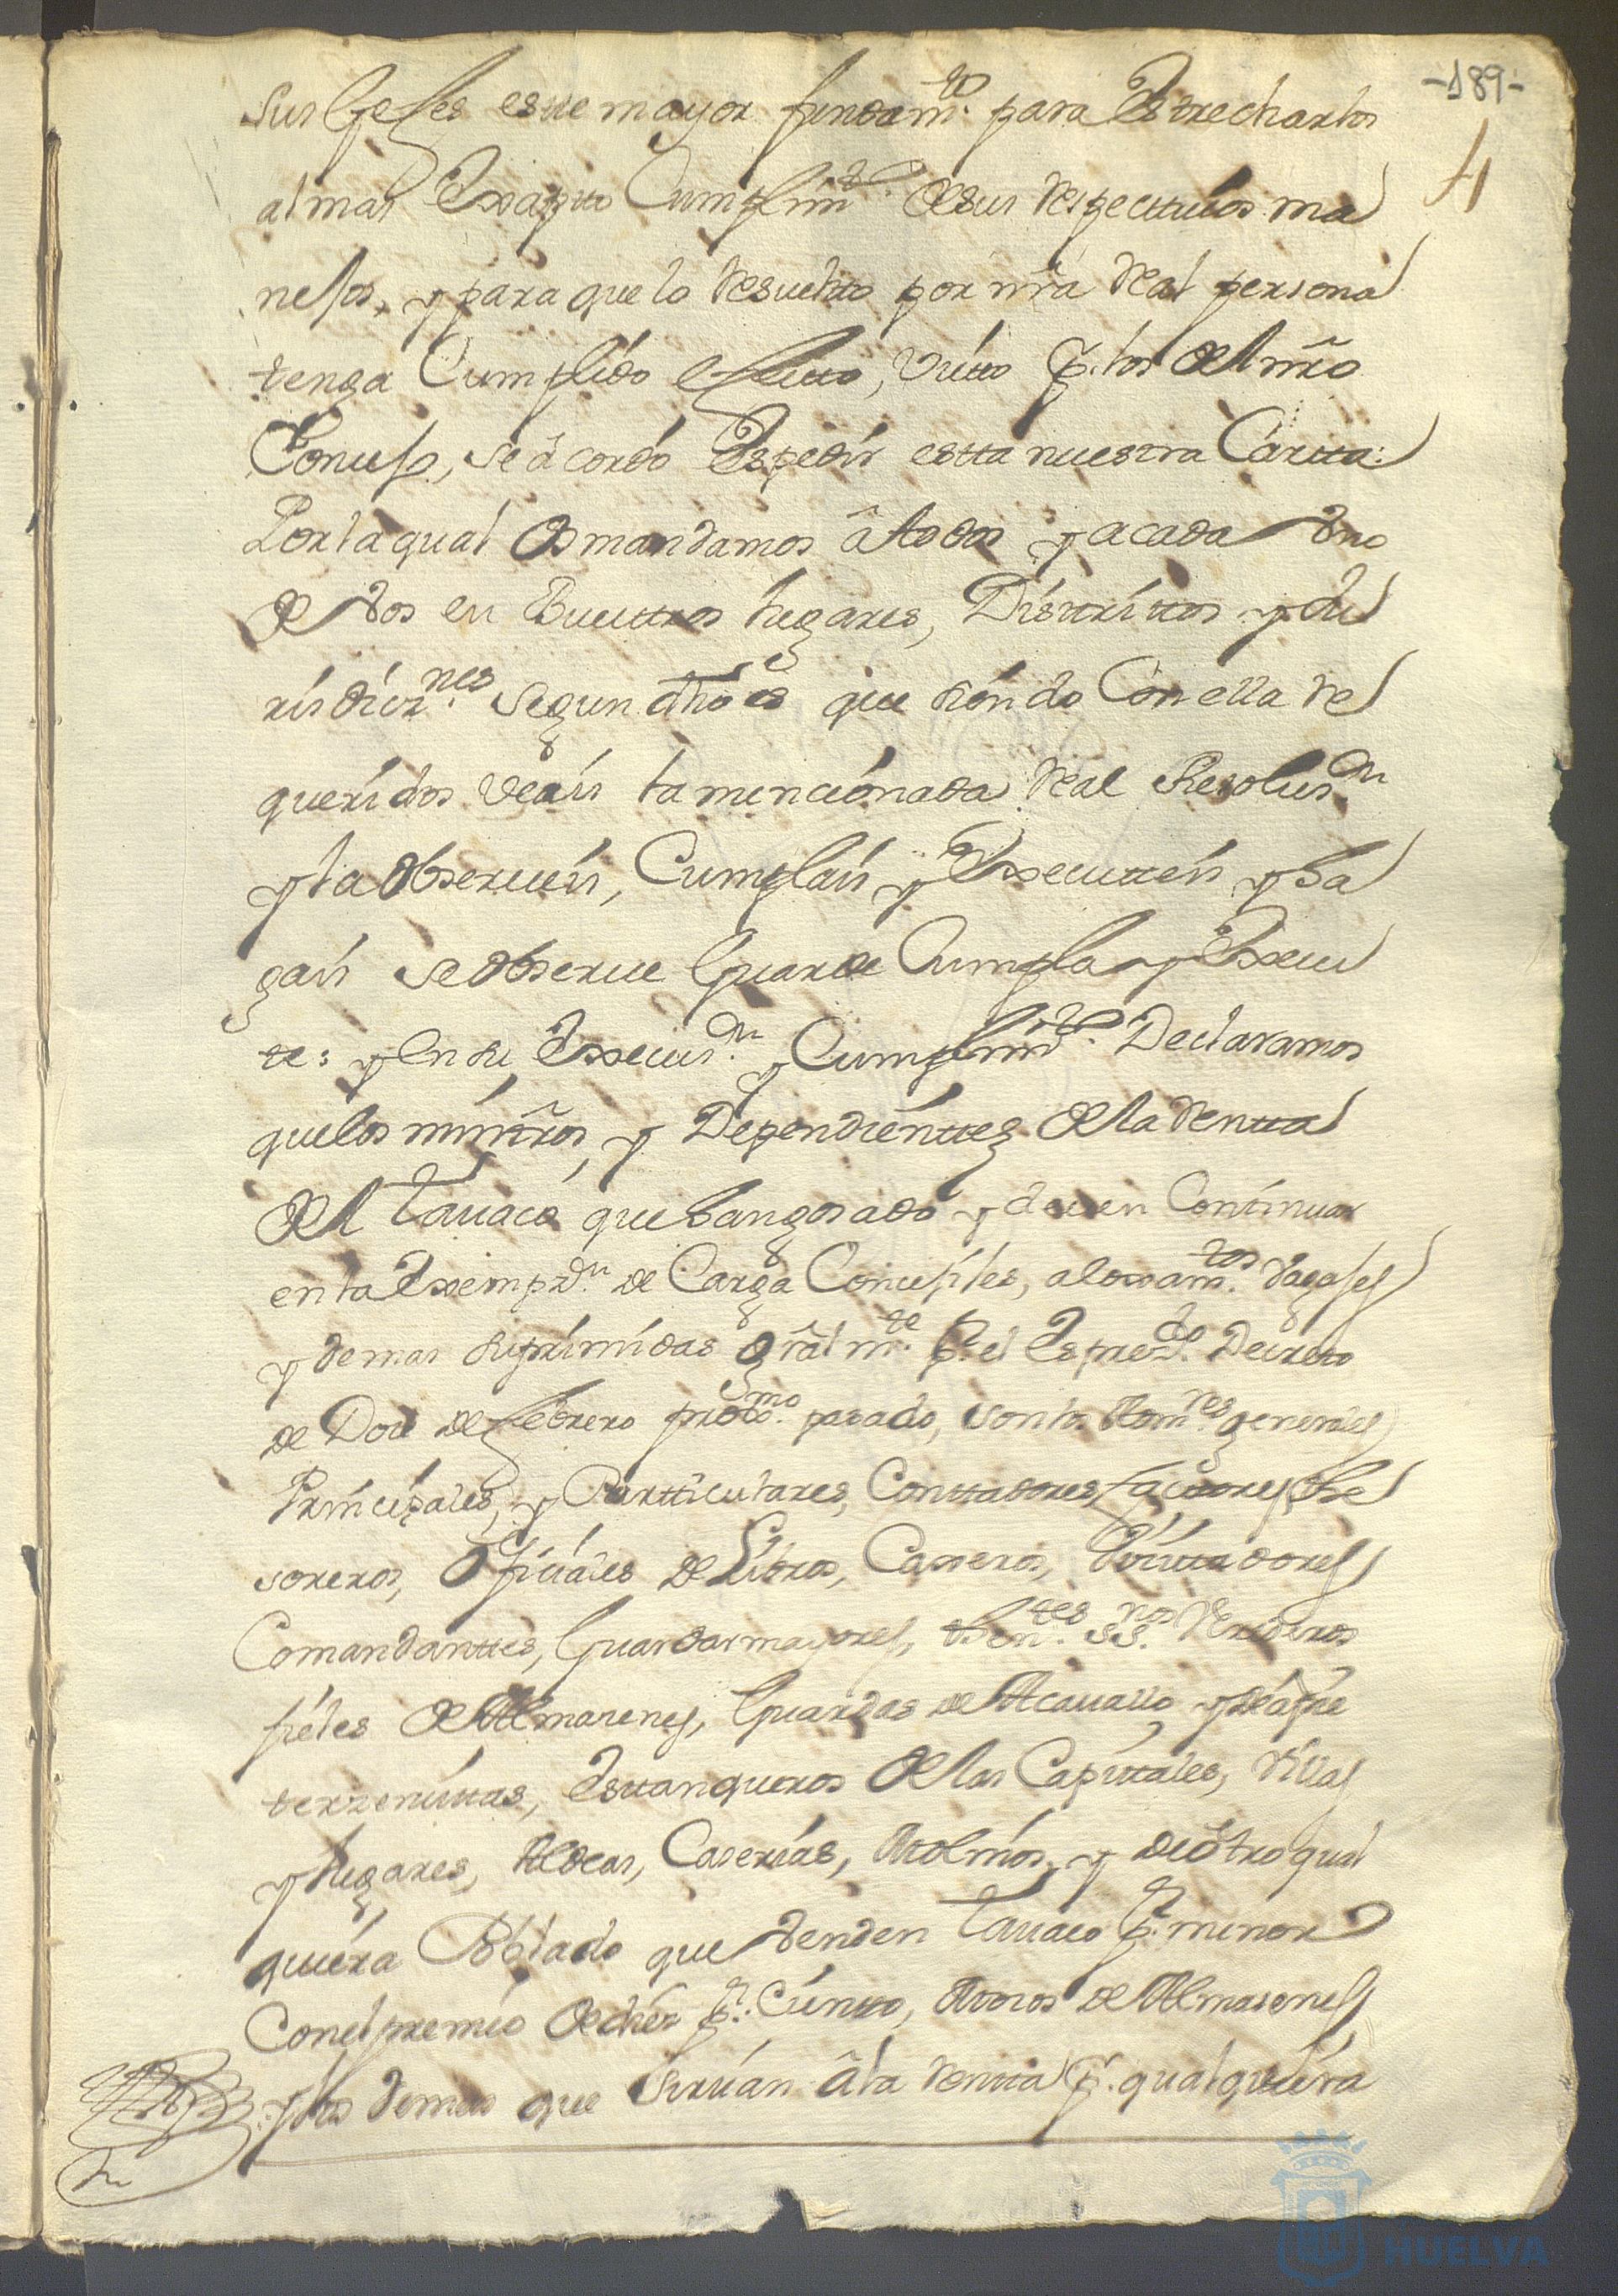 -189-
4
sus Gefes este mayor fundam.to para Estrecharlos
al mas Exapto Cumplim.to de sus respectivos ma
nejos, y para que lo resuelto por nrã Real persona
tenga Cumplido efecto, visto p.r los del nrõ
Consejo, se acordó Espedir estta nuestra Cartta:
Por la qual os mandamos â todos y a cada uno
de vos en vuestros lugares, Distritos y Ju
risdiz.nes segun dho es que siéndo Con ella re
queridos veáis la mencionada Real Resoluz.on
y la observeis, Cumplais y Executteis y ha
gais se observe Guarde Cumpla y Execu
te: y en su Execuz.on y Cumplim.to Declaramos
que los minrõs, y Dependienttes de la Rentta
del Tavaco que han gosado y deven Continuar
en la Exempz.on de Carga Consejiles, aloxam.tos Vagajes
y demas suprimidas grãlm.te p.r el Espres.do Decreto
de Doce de febrero prox.mo pasado, son los Adm.res generales
Principales, y Partticulares, Conttadores, fattores, The
soreros, Oficiales de Libros, Caxeros, Visittadores
Comandanttes, Guardas mayores, Then.tes SS.nos Verederos
fieles de Almazenes, Guardas de Acavallo y de â pie
terzenistas, Esttanqueros de las Capitales, Villas
y lugares, Aldeas, Caserias, Molinos, y de ôtro qual
quiera Poblado que venden Tavaco p.r menor
Con el premio de diez p.r Ciento, Mozos de Almasenes
y los demas que sirvan â la Rentta p.r qualquiera
HUELVA